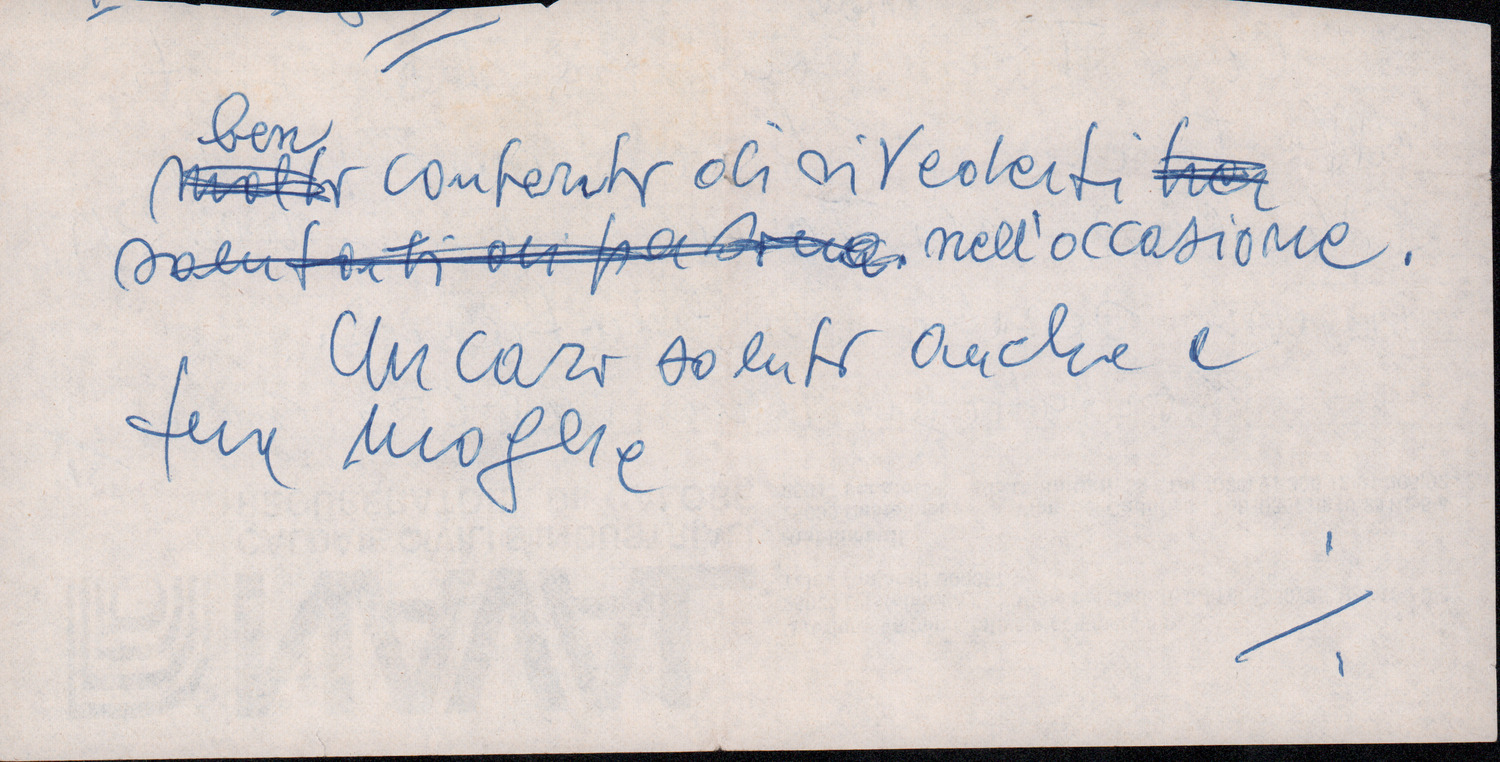 ben
molto contento di rivederti
salutarti di persona. nell'occasione.
Un caro saluto anche a
tua moglie